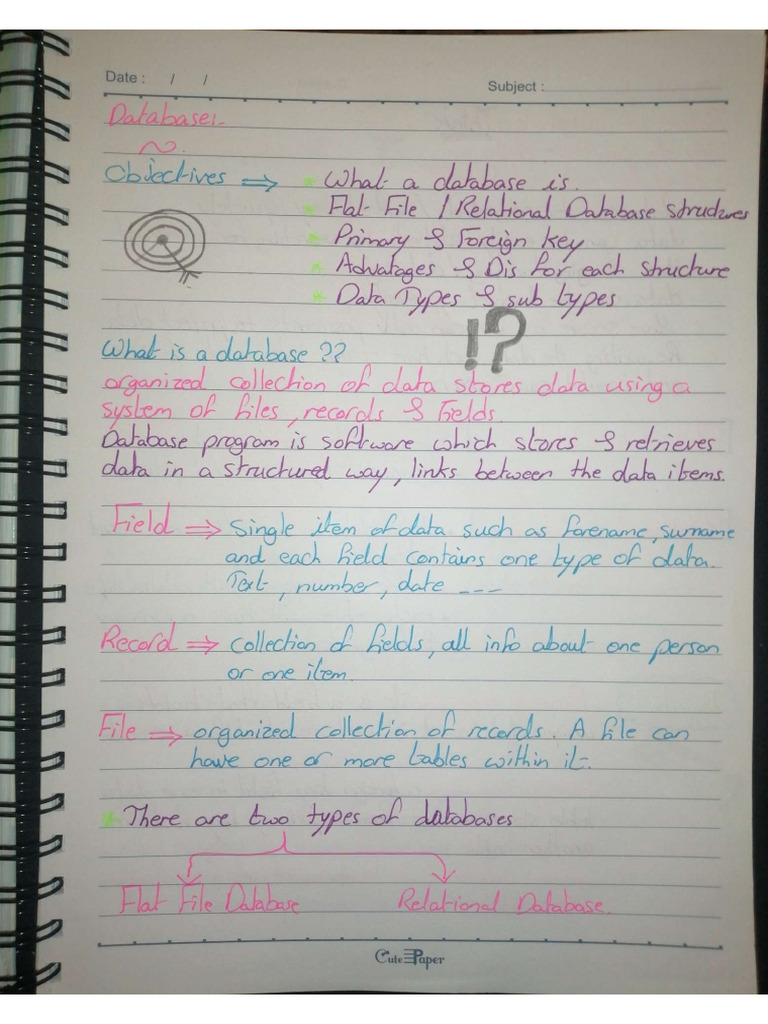 Date : / /
Subject :
Database:-
Objectives ⇒ * What a database is.
* Flat File / Relational Database structures
* Primary & Foreign key
* Advatages & Dis for each structure
* Data Types & sub types
!?
What is a database ??
organized collection of data stores data using a
system of files, records & fields
Database program is software which stores & retrieves
data in a structured way, links between the data items.
Field ⇒ Single item of data such as forename, surname
and each field contains one type of data.
Text, number, date ---
Record ⇒ collection of fields, all info about one person
or one item.
File ⇒ organized collection of records. A file can
have one or more tables within it.
* There are two types of databases
Flat File Database Relational Database.
Cute Paper